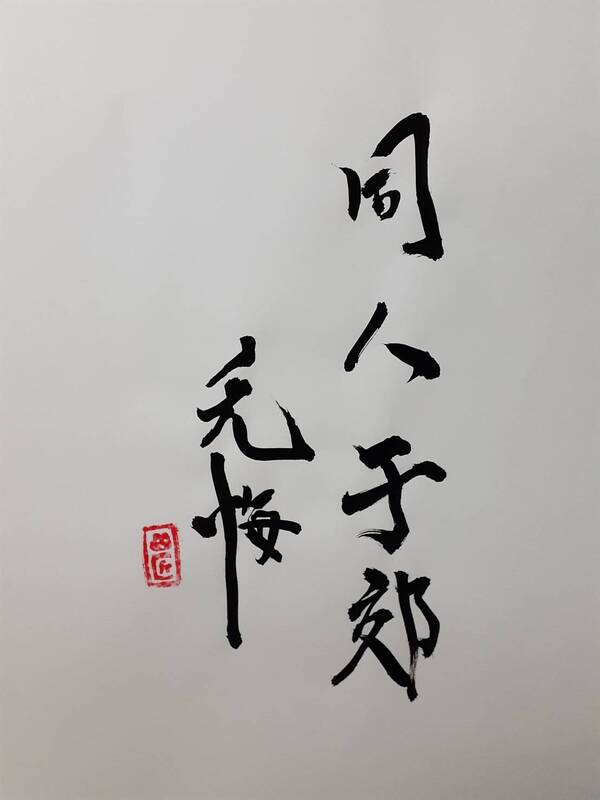 同人于郊
无悔